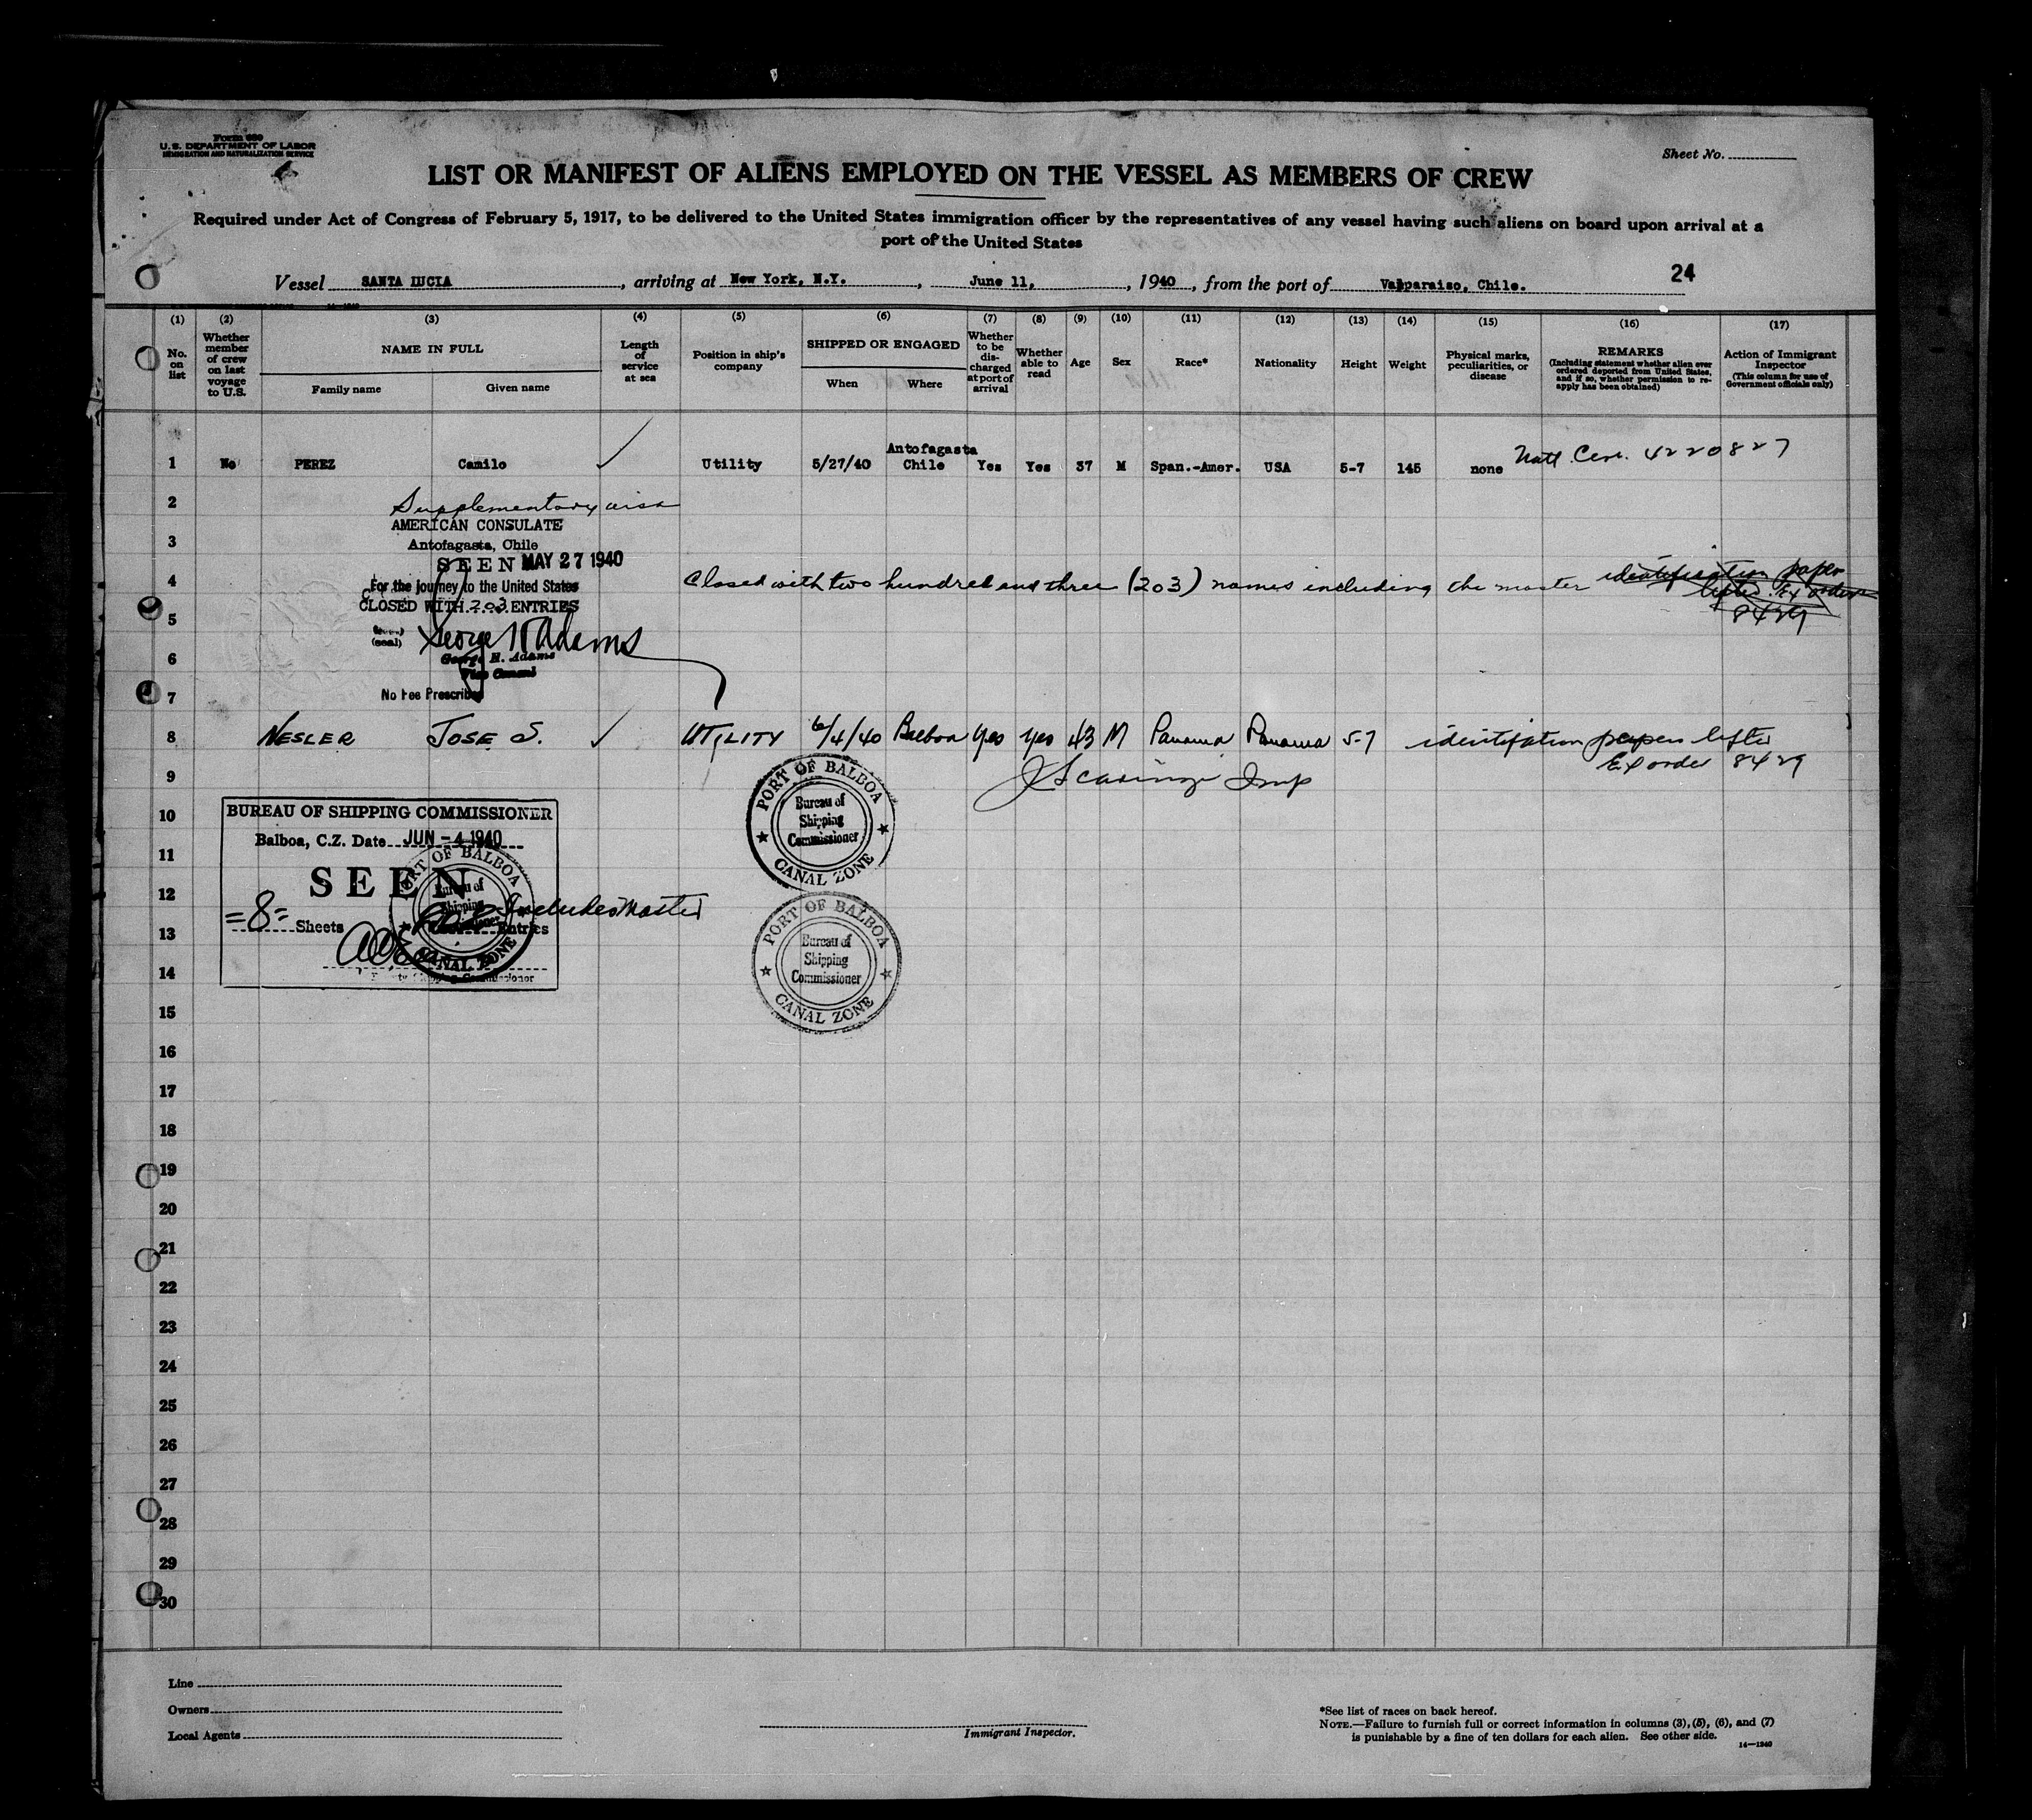 Form 680
U.S. DEPARTMENT OF LABOR
IMMIGRATION AND NATURALIZATION SERVICE
Sheet No.
LIST OR MANIFEST OF ALIENS EMPLOYED ON THE VESSEL AS MEMBERS OF CREW
Required under Act of Congress of February 5, 1917, to be delivered to the United States immigration officer by the representatives of any vessel having such aliens on board upon arrival at a
port of the United States
Vessel SANTA LUCIA, arriving at New York, N.Y., June 11, 1940, from the port of Valparaiso, Chile.
24
(1) (2) (3) (4) (5) (6) (7) (8) (9) (10) (11) (12) (13) (14) (15) (16) (17)
No. on list
Whether member of crew on last voyage to U.S.
NAME IN FULL
Family name Given name
Length of service at sea
Position in ship's company
SHIPPED OR ENGAGED
When Where
Whether to be discharged at port of arrival
Whether able to read
Age
Sex
Race*
Nationality
Height
Weight
Physical marks, peculiarities, or disease
REMARKS
(Including statement whether alien ever ordered deported from United States, and if so, whether permission to reapply has been obtained)
Action of Immigrant Inspector
(This column for use of Government officials only)
1 No PEREZ Camilo Utility 5/27/40 Antofagasta Chile Yes Yes 37 M Span.-Amer. USA 5-7 145 none Natl. Cer. 4220827
2 Supplementary visa
AMERICAN CONSULATE
3 Antofagasta, Chile
SEEN MAY 27 1940
4 For the journey to the United States
Closed with two hundred and three (203) names including the master identification paper
lifted Ex order
8429
CLOSED WITH 203 ENTRIES
5
(seal) George H Adams
6 George H. Adams
Vice Consul
7 No Fee Prescribed
8 NESLER JOSE S. UTILITY 6/4/40 Balboa Yes Yes 43 M Panama Panama 5-7 identifation papers lifted
Ex order 8429
9 J Scaringi Insp
PORT OF BALBOA
Bureau of
Shipping
Commissioner
CANAL ZONE
10 BUREAU OF SHIPPING COMMISSIONER
Balboa, C.Z. Date JUN - 4 1940
11
SEEN
12
=8= Sheets Includes Master
13 Entries
14 Deputy Shipping Commissioner
PORT OF BALBOA
Bureau of
Shipping
Commissioner
CANAL ZONE
PORT OF BALBOA
Bureau of
Shipping
Commissioner
CANAL ZONE
15
16
17
18
19
20
21
22
23
24
25
26
27
28
29
30
Line
Owners
Local Agents
Immigrant Inspector.
*See list of races on back hereof.
NOTE.—Failure to furnish full or correct information in columns (3), (5), (6), and (7)
is punishable by a fine of ten dollars for each alien. See other side.
14—1240